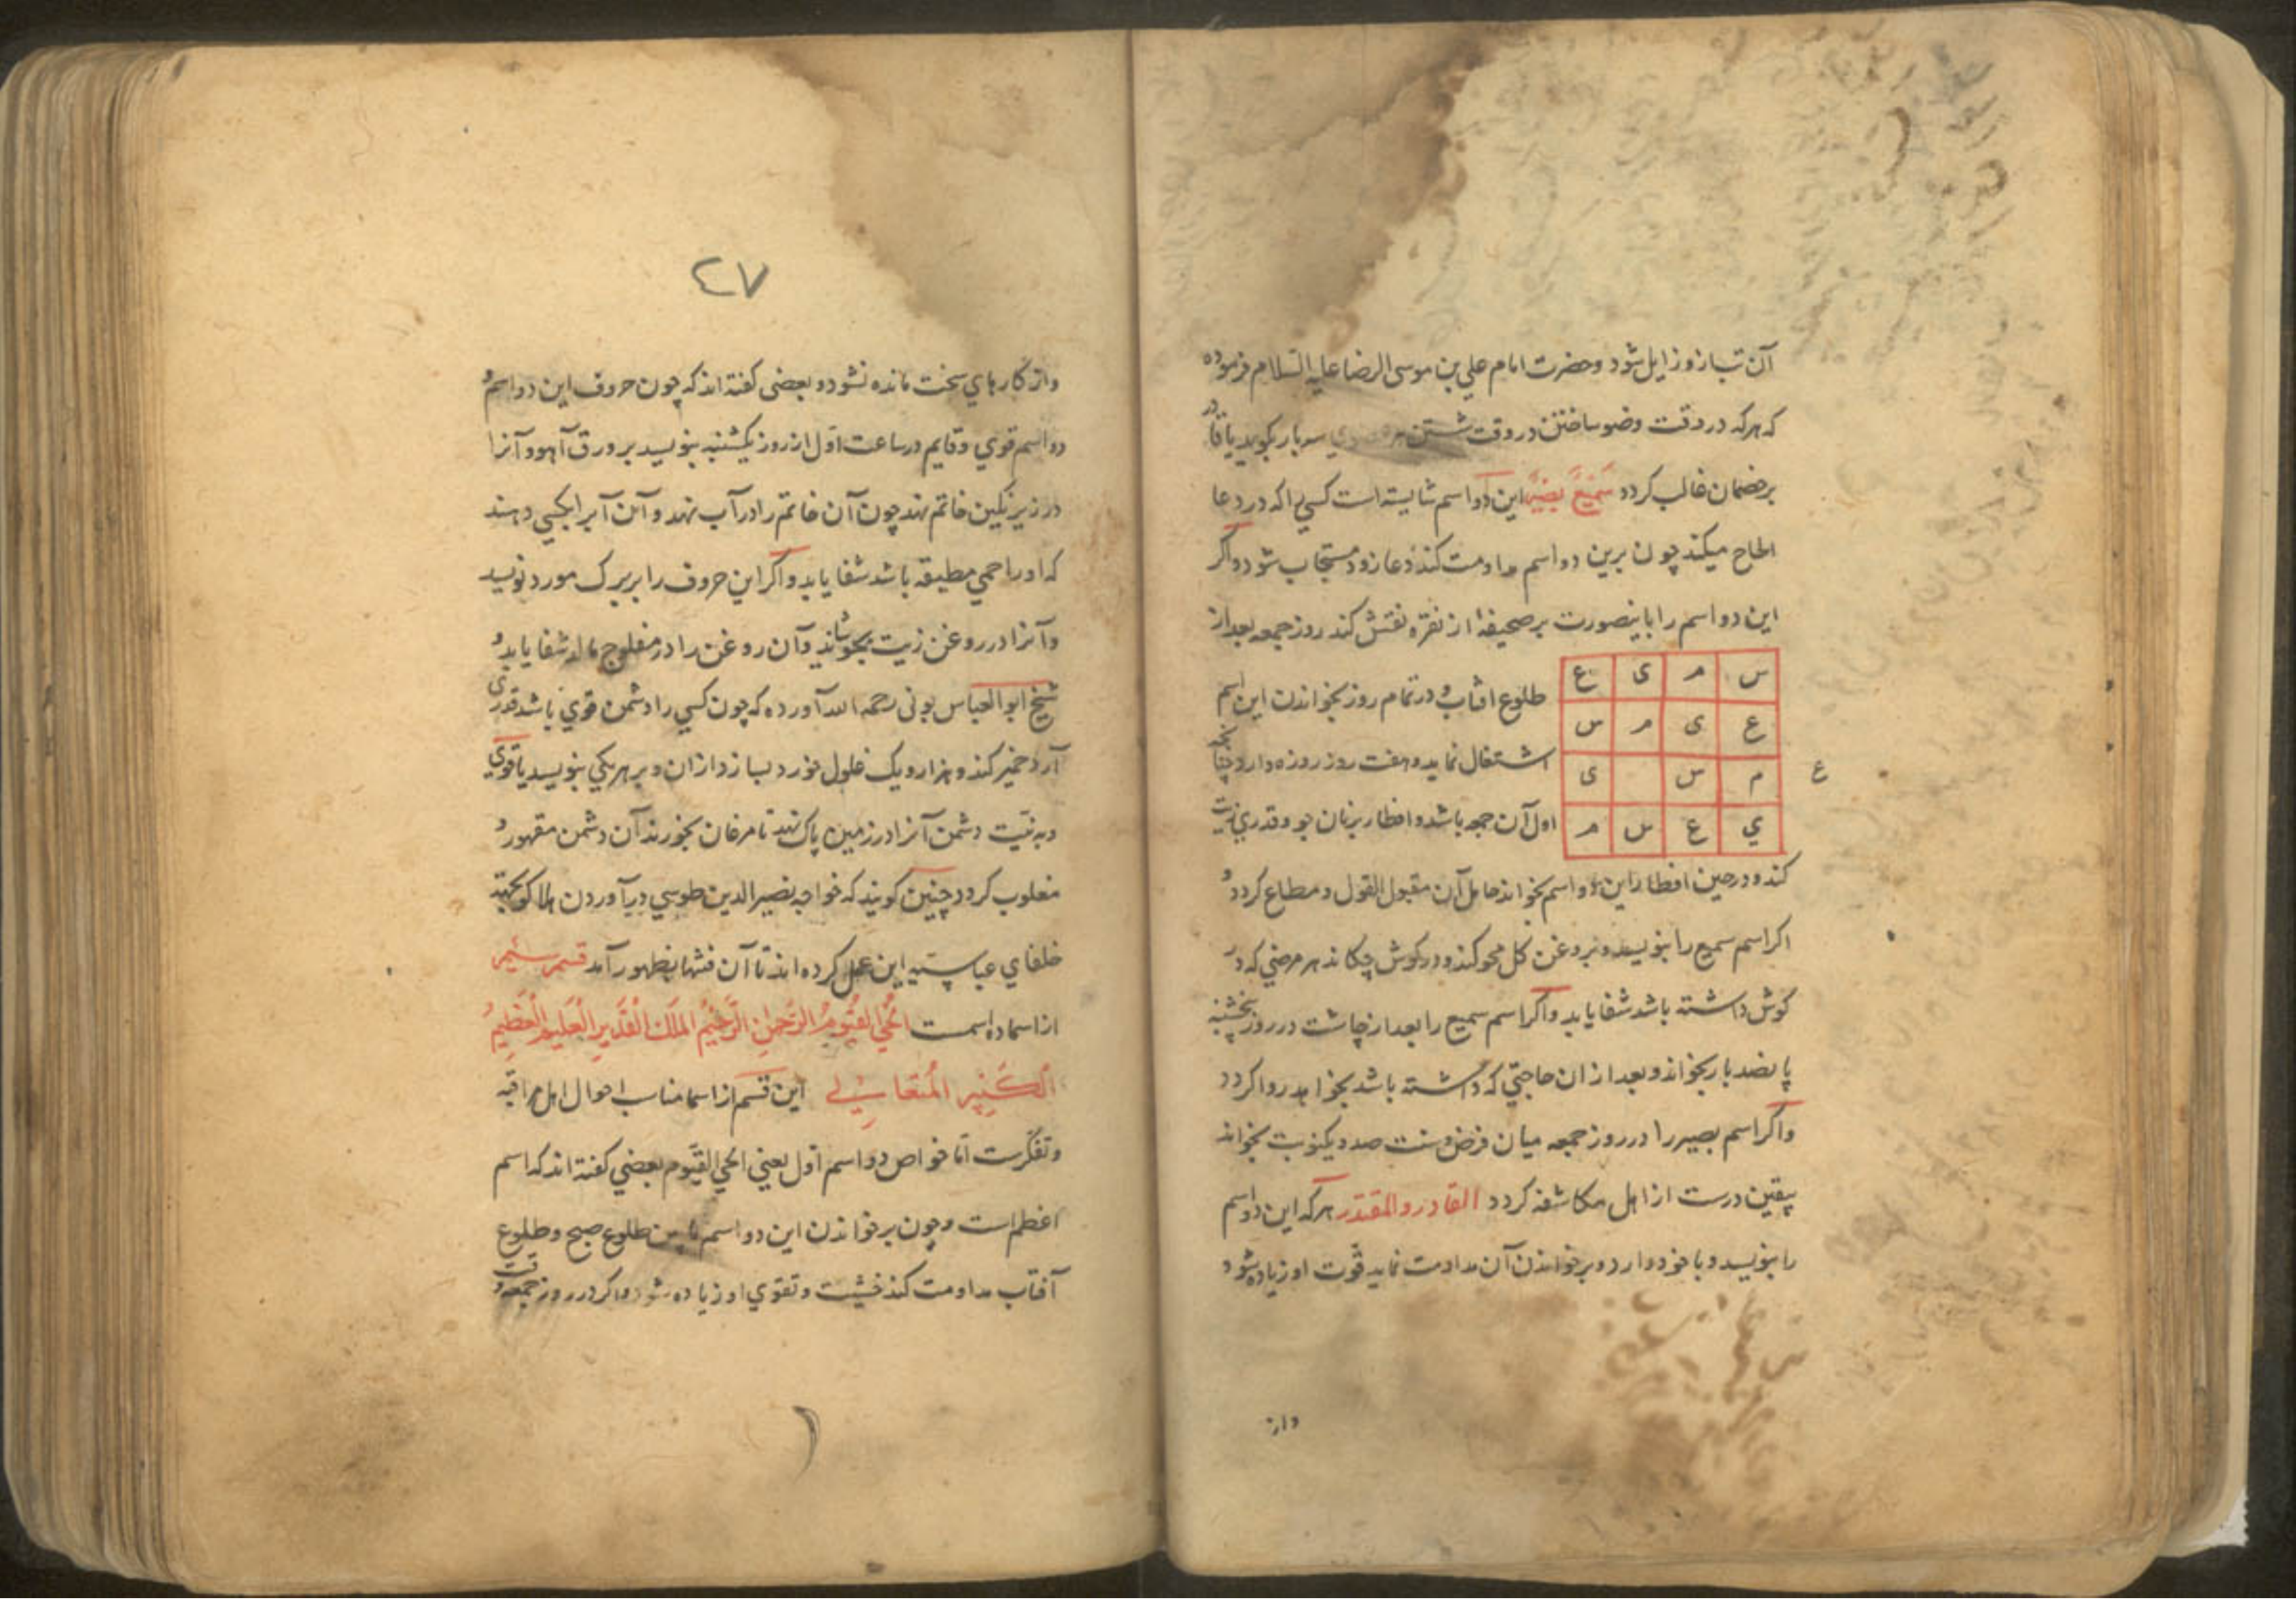 آن تب ازو زایل شود و حضرت امام علي بن موسی الرضا علیه السلام فرموده
که هرکه در وقت وضو ساختن در وقت شستن هر عضوي سه بار بکوید یا قادر
برخصمان غالب کردد سَمِیعٌ بَصِیرٌ این دو اسم شایسته است کسي را که در دعا
الحاح میکند چون برین دو اسم مداومت کند دعا زود مستجاب شود و اکر
این دو اسم را باینصورت بر صحیفهٔ از نقره نقش کند روز جمعه بعد از
س م ی ع
ع ی م س
م س ی
ي ع س م
ع
طلوع افتاب و در تمام روز بخواندن این اسم
اشتغال نماید و هفت روز روزه دارد چنانکه
اول آن جمعه باشد و افطار بر نان جو و قدري زیت
کند و در حین افطار این دو اسم بخواند حامل آن مقبول القول و مطاع کردد و
اکر اسم سمیع را بنویسد و بروغن کل محو کند و در کوش چکاند هر مرضي که در
کوش داشته باشد شفا یابد و اکر اسم سمیع را بعد از چاشت در روز پنجشنبه
پانصد بار بخواند و بعد از ان حاجتي که داشته باشد بخواهد روا کردد
و اکر اسم بصیر را در روز جمعه میان فرض و سنت صد و یکنوبت بخواند
بیقین درست از اهل مکاشفه کردد القادر و المقتدر هرکه این دو اسم
را بنویسد و با خود دارد و بر خواندن آن مداومت نماید قوت او زیاده شود
واز
٤٧
و از کارهاي سخت مانده نشود و بعضی کفته اند که چون حروف این دو اسم و
دو اسم قوي و قایم در ساعت اول از روز یکشنبه بنویسد بر ورق آهو و آنرا
در زیر نکین خاتم نهد چون آن خاتم را در آب نهد و آن آب را بکسي دهند
که او را حمي مطبقه باشد شفا یابد و اکر این حروف را بر برک مورد نویسد
و آنرا در روغن زیت بجوشاند و آن روغن را در مفلوج مالد شفا یابد و
شیخ ابو العباس بونی رحمه الله آورده که چون کسي را دشمن قوي باشد قدری
آرد خمیر کند و هزار و یک غلول خورد بسازد از ان و بر هر یکي بنویسد یا قوي
و به نیت دشمن آنرا در زمین پاک نهد تا مرغان بخورند آن دشمن مقهور و
مغلوب کردد چنین کویند که خواجه نصیر الدین طوسي در آوردن هلاکو بجهته
خلفاي عباسیه این عمل کرده اند تا آن فتنها بظهور آمد قسم سیم
از اسما ده اسمست الحي القیوم الرحمن الرحیم الملک القدیر العلیم العظیم
الکبیر المتعالي این قسم از اسما مناسب احوال اهل مراقبه
و تفکرست اما خواص دو اسم اول یعني الحي القیوم بعضي کفته اند که اسم
اعظم است و چون بر خواندن این دو اسم ما بین طلوع صبح و طلوع
آفتاب مداومت کند خشیت و تقوي او زیاده شود و اکر در روز جمعه وقت